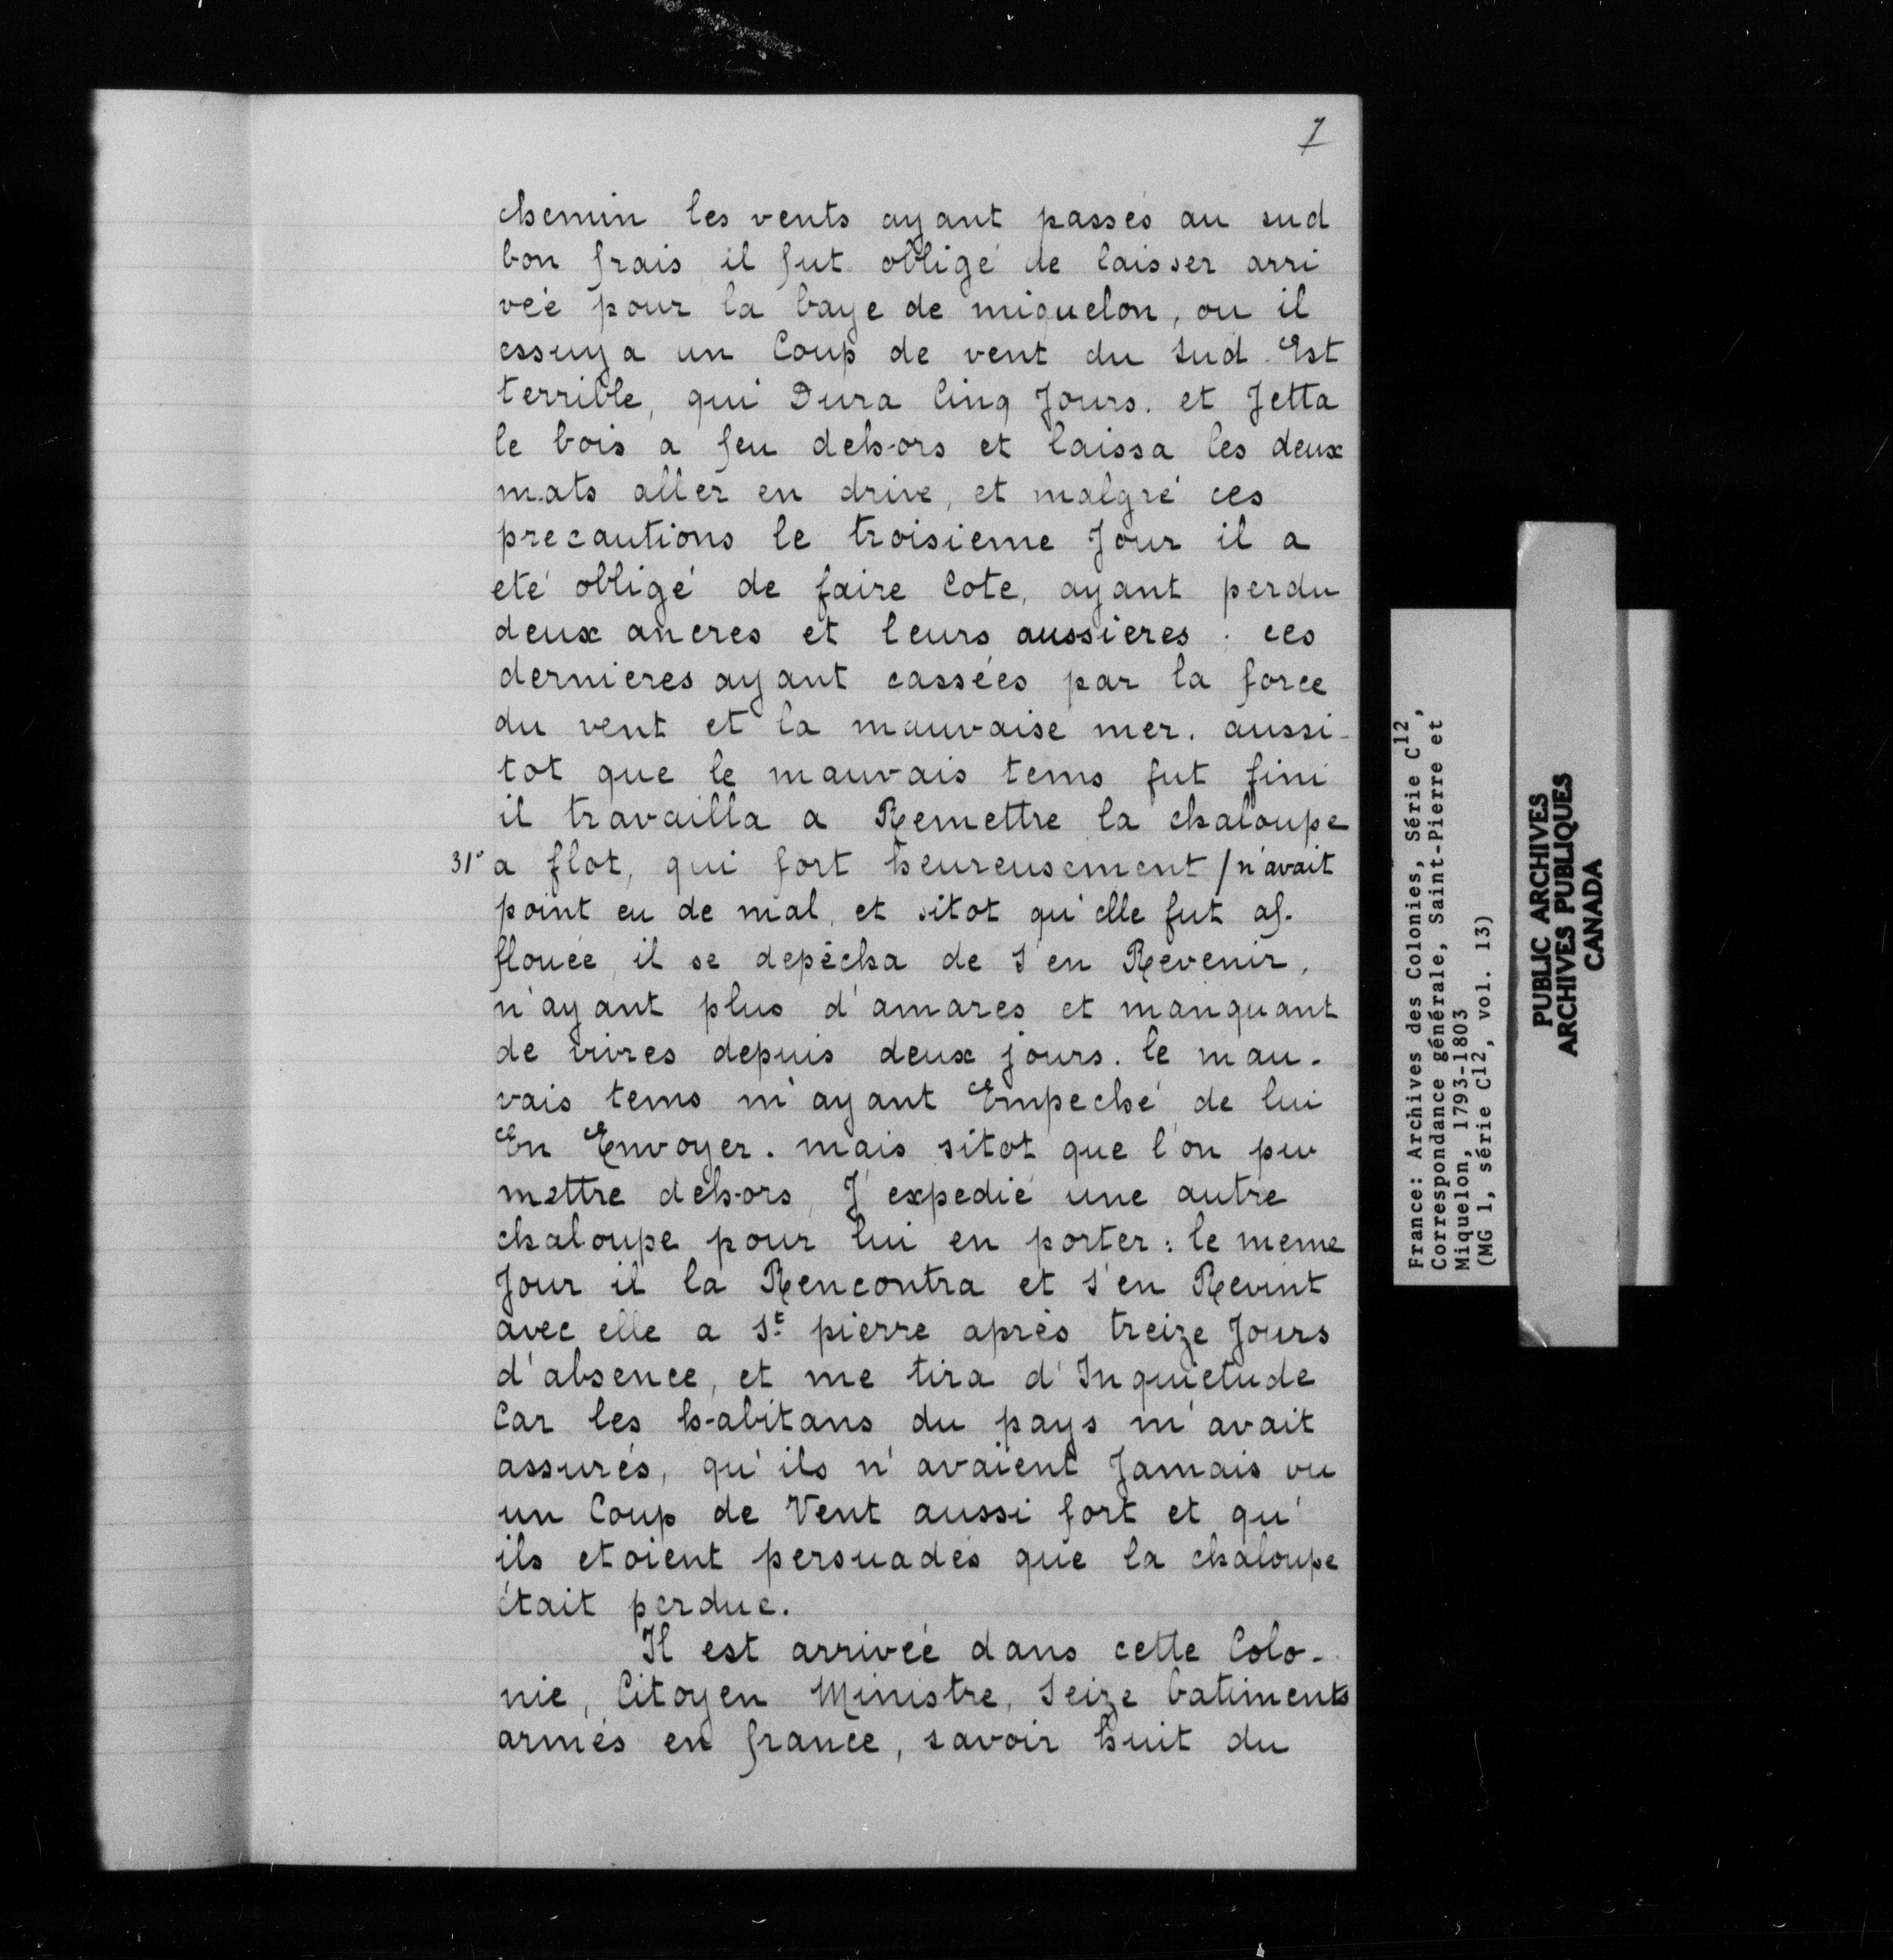 7
chemin les vents ayant passés au sud
bon frais il fut obligé de laisser arri
véé pour la baye de miquelon, ou il
essuya un Coup de vent du sud Est
terrible, qui Dura Cinq Jours. et Jetta
le bois a feu dehors et laissa les deux
mats aller en drive, et malgré ces
precautions le troisieme Jour il a
eté obligé de faire Cote, ayant perdu
deux ancres et leurs aussieres. ces
dernieres ayant cassées par la force
du vent et la mauvaise mer. aussi-
tot que le mauvais tems fut fini
il travailla a Remettre la chaloupe
31 v a flot, qui fort heureusement / n'avait
point eu de mal, et sitot qu'elle fut af-
flouée, il se depécha de s'en Revenir,
n'ayant plus d'amares et manquant
de vivres depuis deux jours. le mau-
vais tems m'ayant Empeché de lui
En Envoyer. mais sitot que l'on pu
mettre dehors, J'expedié une autre
chaloupe pour lui en porter: le meme
Jour il la Rencontra et s'en Revint
avec elle a St pierre aprés treize Jours
d'absence, et me tira d'Inquietude
Car les habitans du pays m'avait
assurés, qu'ils n'avaient Jamais vu
un Coup de Vent aussi fort et qu'
ils etoient persuadés que la chaloupe
était perdue.
Il est arrivéé dans cette Colo-
nie, Citoyen Ministre, Seize batiments
armés en france, savoir huit du
France: Archives des Colonies, Série C12,
Correspondance générale, Saint-Pierre et
Miquelon, 1793-1803
(MG 1, série C12, vol. 13)
PUBLIC ARCHIVES
ARCHIVES PUBLIQUES
CANADA